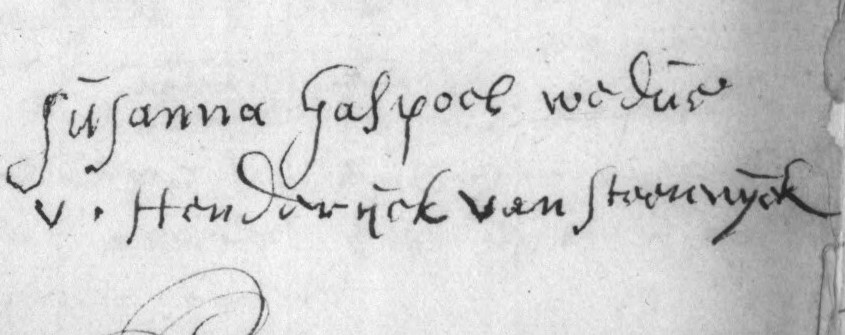 Susanna Gaspoel wedue
v. Henderijck van Steenwijck